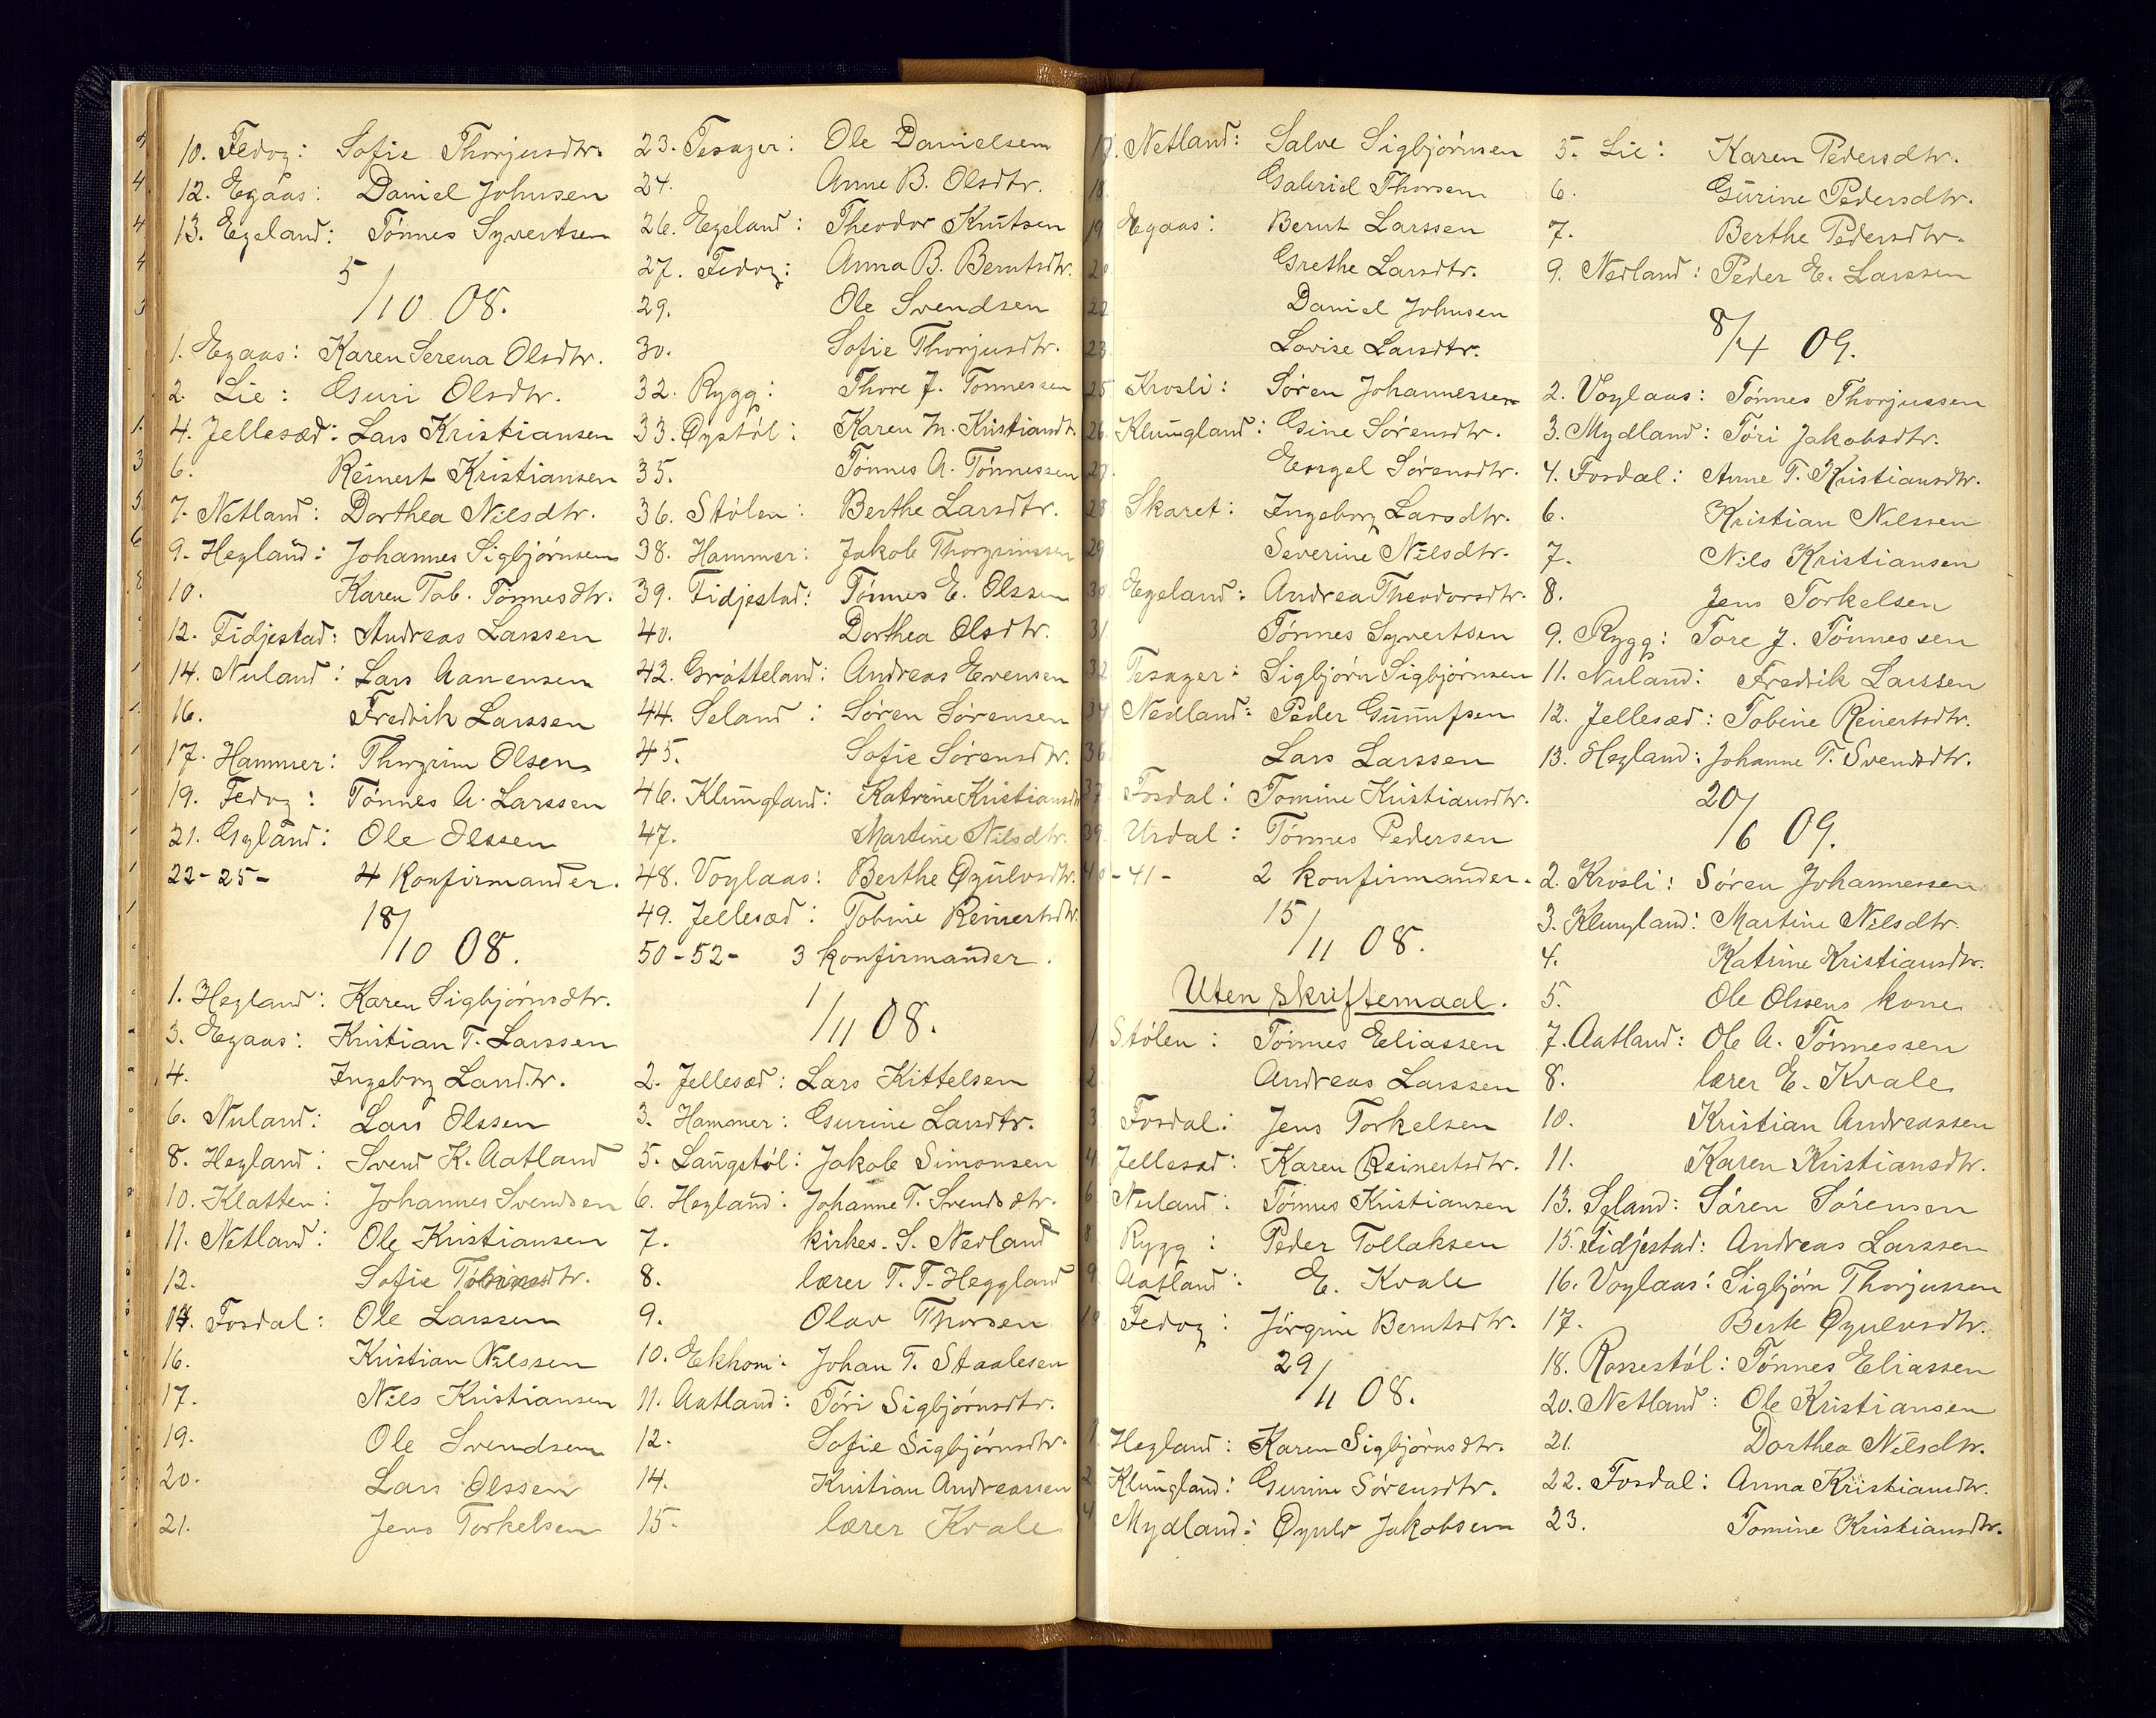 10. Fedog: Sofie Thorjusdtr.
12. Egaas: Daniel Johnsen
13. Egeland: Tønnes Syvertsen
5/10 08.
1. Egaas: Karen Serena Olsdtr.
2. Lie: Guri Olsdtr.
4. Jellesæd: Lars Kristiansen
6. Reinert Kristiansen
7. Netland: Dorthea Nilsdtr.
9. Hegland: Johannes Sigbjørnsen
10. Karen Tob. Tønnesdtr.
12. Fidjestad: Andreas Larssen
14. Nuland: Lars Aanensen
16. Fredrik Larssen
17. Hammer: Thorgrim Olsen
19. Fedog: Tønnes A. Larssen
21. Gyland: Ole Olssen
22-25- 4 Konfirmander.
18/10 08.
1. Hegland: Karen Sigbjørnsdtr.
3. Egaas: Kristian T. Larssen
4. Ingeborg Larsdtr.
6. Nuland: Lars Olssen
8. Hegland: Svend K. Aatland
10. Klatten: Johannes Svendsen
11. Netland: Ole Kristiansen
12. Sofie
14. Fosdal: Ole Larssen
16. Kristian Nilssen
17. Nils Kristiansen
19. Ole Svendsen
20. Lars Olssen
21. Jens Torkelsen
23. Tesager: Ole Danielsen
24. Anne B. Olsdtr.
26. Egeland: Theodor Knutsen
27. Fedog: Anna B. Berntsdtr.
29. Ole Svendsen
30. Sofie Thorjusdtr.
32. Rygg: Thore J. Tønnessen
33. Øystøl: Karen M. Kristiansdtr.
35. Tønnes A. Tønnessen
36. Stølen: Berthe Larsdtr.
38. Hammer: Jakob Thorgrimssen
39. Fidjestad: Tønnes E. Olssen
40. Dorthea Olsdtr.
42. Grøtteland: Andreas Evensen
44. Seland: Søren Sørensen
45. Sofie Sørensdtr.
46. Klungland: Katrine Kristiansdtr
47. Martine Nilsdtr.
48. Voglaas: Berthe Øyulvsdtr.
49. Jellesæd: Tobine Reinertsdtr.
50-52- 3 konfirmander.
1/11 08.
2. Jellesæd: Lars Kittelsen
3. Hammer: Gurine Larsdtr.
5. Langstøl: Jakob Simonsen
6. Hegland: Johanne T. Svendsdtr.
7. kirkes. S. Nedland
8. lærer T. T. Heggland
9. Olav Thorsen
10. Ekhom: Johan T. Staalesen
11. Aatland: Tøri Sigbjørnsdtr.
12. Sofie Sigbjørnsdtr.
14. Kristian Andreassen
15. lærer Kvale
17. Netland: Salve Sigbjørnsen
18. Gabriel Thorsen
19 Egaas: Bernt Larssen
20 Grethe Larsdtr.
22 Daniel Johnsen
23 Lovise Larsdtr.
25 Krosli: Søren Johannessen
26. Klungland: Gine Sørensdtr.
27. Engel Sørensdtr.
28 Skaret: Ingeborg Larsdtr.
29 Severine Nilsdtr.
30 Egeland: Andrea Theodorsdtr.
31 Tønnes Syvertsen
32 Tesager: Sigbjørn Sigbjørnsen
34 Nedland: Peder Gunnufsen
36 Lars Larssen
37 Fosdal: Tomine Kristiansdtr.
39. Urdal: Tønnes Pedersen
40-41- 2 konfirmander.
15/11 08.
Uten skriftemaal.
1 Stølen: Tønnes Eliassen
2 Andreas Larssen
3 Fosdal: Jens Torkelsen
4 Jellesæd: Karen Reinertsdtr.
6 Nuland: Tønnes Kristiansen
8 Rygg: Peder Tollaksen
9 Aatland: E. Kvale
10 Fedog: Jørgine Berntsdtr.
29/11 08.
1 Hegland: Karen Sigbjørnsdtr.
2. Klungland: Gurine Sørensdtr.
4 Mydland: Øyulv Jakobsen
5. Lie: Karen Pedersdtr.
6. Gurine Pedersdtr.
7. Berthe Pedersdtr.
9. Nedland: Peder E. Larssen
8/4 09.
2. Voglaas: Tønnes Thorjussen
3. Mydland: Tøri Jakobsdtr.
4. Fosdal: Anne T. Kristiansdtr.
6. Kristian Nilssen
7. Nils Kristiansen
8. Jens Torkelsen
9. Rygg: Tore J. Tønnessen
11. Nuland: Fredrik Larssen
12. Jellesæd: Tobine Reinertsdtr.
13. Hegland: Johanne T. Svendsdtr.
20/6 09.
2. Krosli: Søren Johannessen
3. Klungland: Martine Nilsdtr.
4. Katrine Kristiansdtr.
5. Ole Olssens kone
7. Aatland: Ole A. Tønnessen
8. lærer E. Kvale
10. Kristian Andreassen
11. Karen Kristiansdtr.
13. Seland: Søren Sørensen
15. Fidjestad: Andreas Larssen
16. Voglaas: Sigbjørn Thorjussen
17. Berte Øyulvsdtr.
18. Rossestøl: Tønnes Eliassen
20. Netland: Ole Kristiansen
21. Dorthea Nilsdtr.
22. Fosdal: Anna Kristiansdtr.
23. Tomine Kristiansdtr.